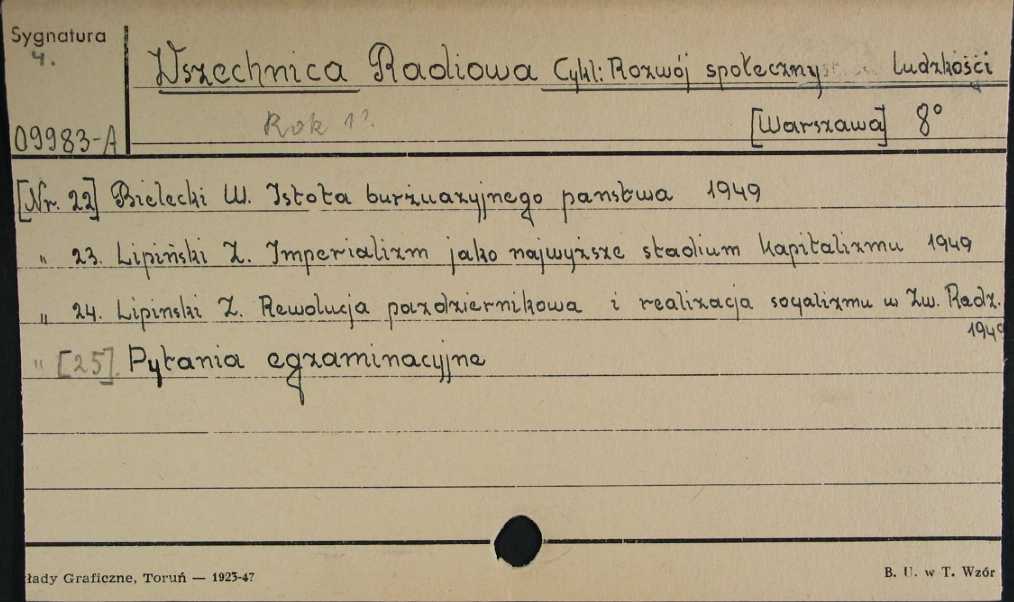 Sygnatura
4.
09983-A
Wszechnica Radiowa Cykl: Rozwój społeczny ludzkości
Rok 1?
[Warszawa] 8°
[Nr. 22] Bielecki W. Istota burżuazyjnego państwa 1949
" 23. Lipiński Z. Imperializm jako najwyższe stadium kapitalizmu 1949
" 24. Lipinski Z. Rewolucja pazdziernikowa i realizacja socjalizmu w Zw. Radz.
1949
" [25]. Pytania egzaminacyjne
łady Graficzne, Toruń — 1923-47
B. U. w T. Wzór